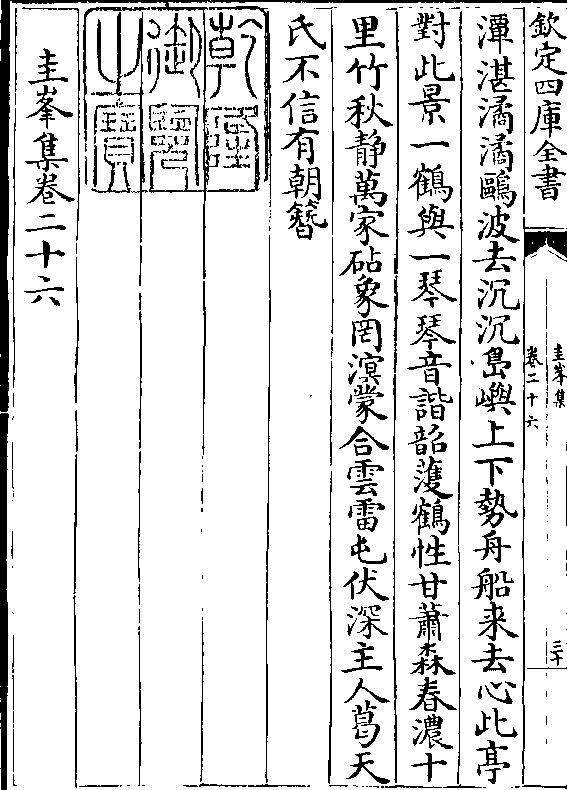 欽定四庫全書
圭峯集
卷二十六
三十
潭湛潏潏鷗波去沉沉島嶼上下勢舟船来去心此亭
對此景一鶴與一琴琴音諧韶頀鶴性甘蕭森春濃十
里竹秋静萬家砧象罔溟蒙合雲雷屯伏深主人葛天
氏不信有朝簪
乾隆
御覽
之寶
圭峯集卷二十六